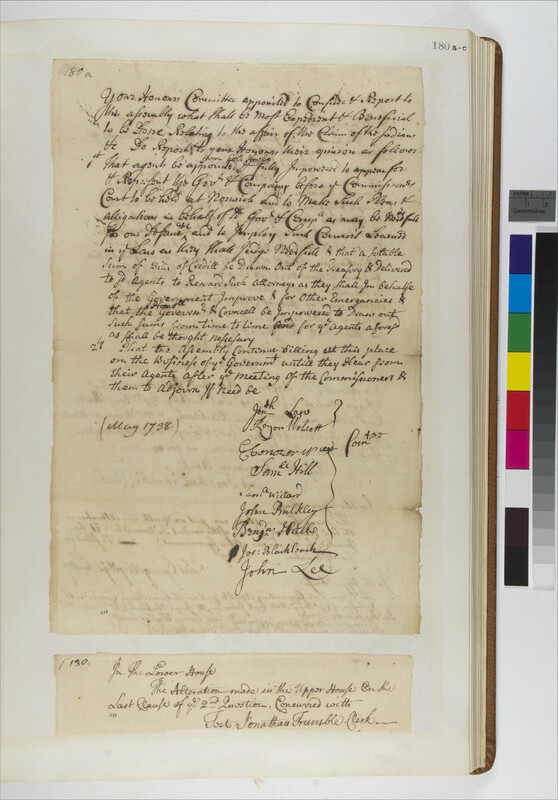 180 a-c
180 a
Your Honours Committee appointed to Consider & Report to
this assembly what shall be most Expedient & Beneficial
to be Done Relating to the affair of the Claim of the Indians
&c Do Report to your Honours their opinion as follows
1st That agents be appointed fully Impowered to appear for
from Each House
& Represent the Govr & Company before ye Commissioners
Court to be held at Norwich and to Make Such Pleas &
allegations in behalf of sd Govr & Compa as may be Needfull
to our Defence, and to Imploy Such Council Learned
in ye Law as they shall Judge Needfull & that a sutable
Sum of Bills of Creditt be Drawn Out of the Treasury & Delivered
to sd Agents to Reward Such Attorneys as they shall In behalfe
of the Government Improve & for Other Emergencies &
that the Goverr & Councell be Impowered to Draw out
Such sums from time to time for ye Agents aforesd
as shall be thought nessesary
2d That the Assembly Continue Sitting at this place
on the Business of ye Government untill they Hear from
their Agents after ye meeting of the Commissioners &
them to Adjorn If need be
(May 1738)
Jonth Law
Roger Wolcott
Ebenezer
Comtee
Samll Hill
Willard
John Bulkley
Benjn Hall
Jos: Blackleach
John Lee
180
In The Lower House
The Alteration made in the Upper House On the
Last Clause of ye 2nd Question, Concurred with
Test Jonathan Trumble Clerk